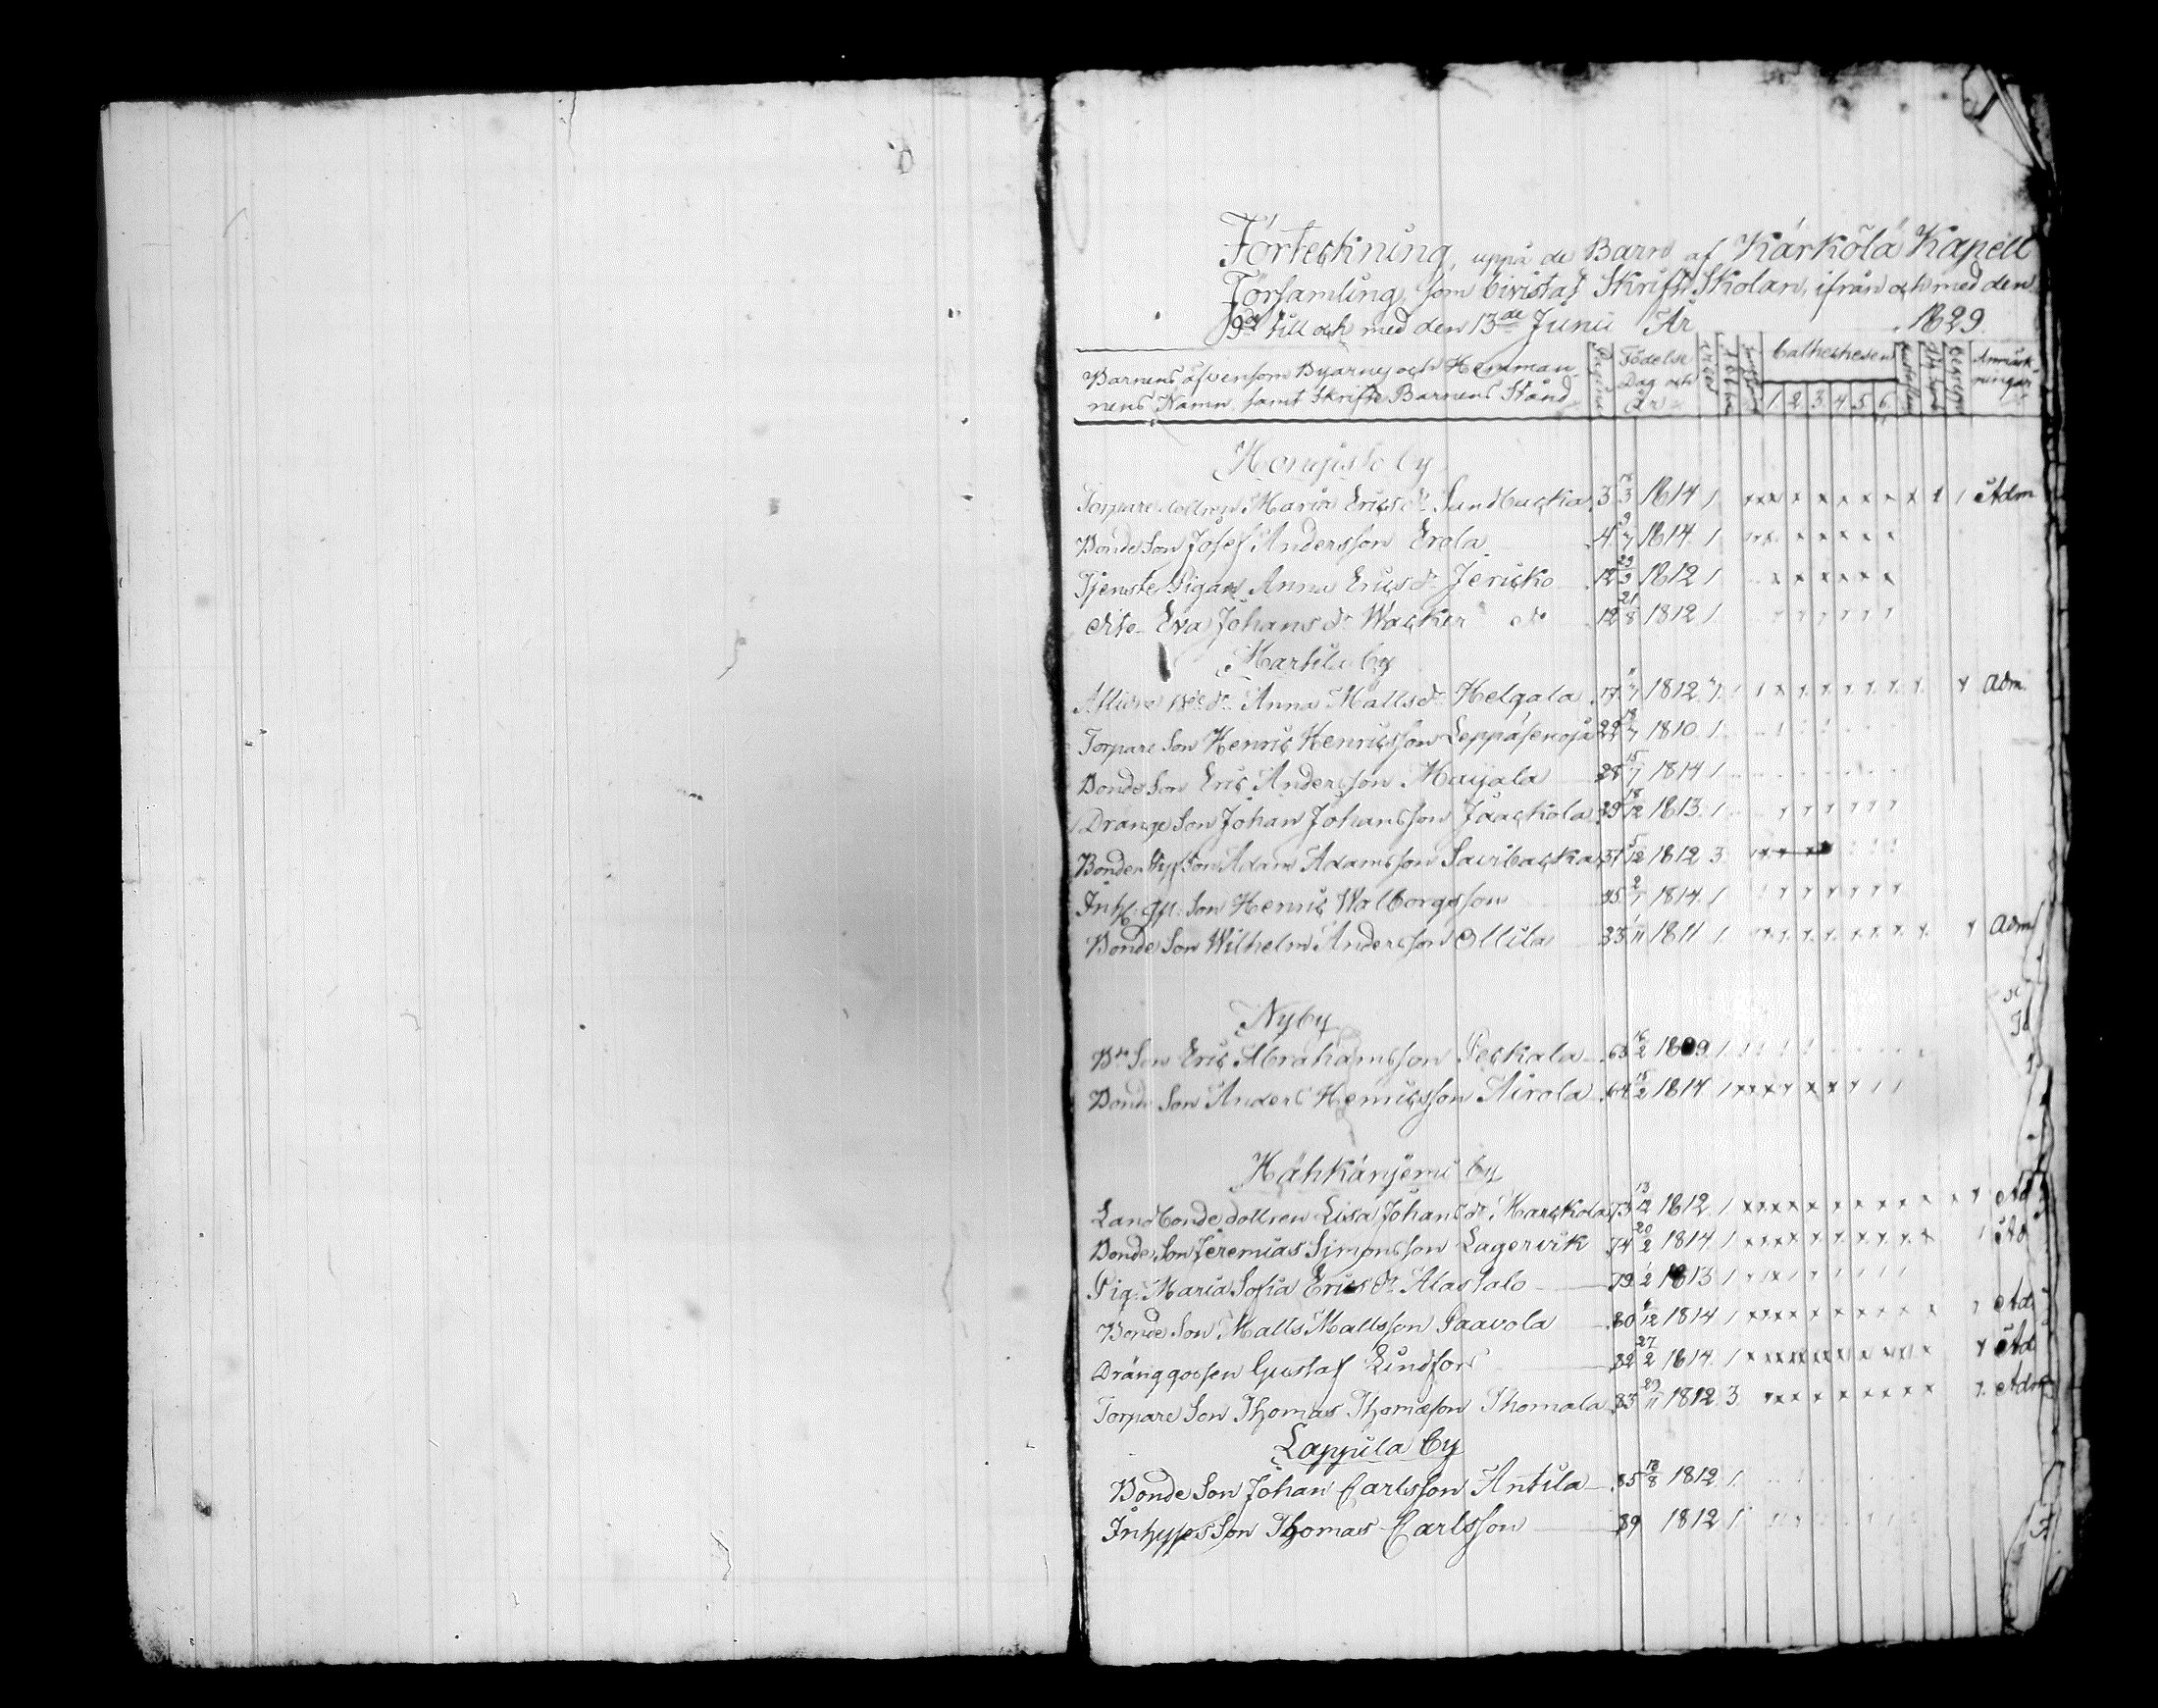 Förteckning, uppå de Barn af Kärkölä Kapell
Församling, som bivistat Skrift Skolan, ifrån och med den
9de till och med den 13de Junii År 1829
Barnens äfvensom Byarnes och Hemman-
nens Namn, samt Skrifte Barnens Stånd Pagina Födelse Dag och År Cathechesen 1 2 3 4 5 6 Anmärk-ningar
Hongisto by
Torpare dottren Maria Ericsdr Sandbacka 3 18/3 1814 1 Adm
Bonde Son Josef Andersson Erola 4 9/7 1814 1
Tjenste Pigan Anna Ericsdr Jericko 12 23/3 1812 1
dito Eva Johansdr Wacker do 12 21/8 1812 1
Martila by
Afl. Anna Mattsdr Helgala 17 1812 Adm.
Torpare Son Henric Henricsson Leppäsenoja 22 18/7 1810 1
Bonde Son Eric Andersson Maijala 28 15/7 1814 1
Dränge Son Johan Johansson Jaackola 29 18/12 1813 1
Bonden Son Adam Adamsson Savibacka 31 5/12 1812 3
Inh: Son Henric Walborgsson 35 2/7 1814 1
Bonde Son Wilhelm Andersson Ollila 33 1/11 1811 1 Adm
Nyby
Bde Son Eric Abrahamsson Peckala 63 16/2 1809 1
Bonde Son Anders Henricsson Airola 64 15/2 1814 1
Hähkäniemi by
Landbonde dottren Lisa Johansdr Marckola 73 13/12 1812 1 Ad
Bonde Son Jeremias Simonsson Lagervik 74 20/2 1814 1 Ad
Pig. Maria Sofia Ericsdr Alastalo 79 1/2 1813 1
Bonde Son Matts Mattsson Paavola 80 1814 1 Ad
Dränggossen Gustaf Lindfors 82 27/2 1814 1 Ad
Torpare Son Thomas Thomasson Thomala 83 29/11 1812 3 Adm
Lappila by
Bonde Son Johan Carlsson Antila 85 18/8 1812 1
Inhyses Son Thomas Carlsson 89 1812 1